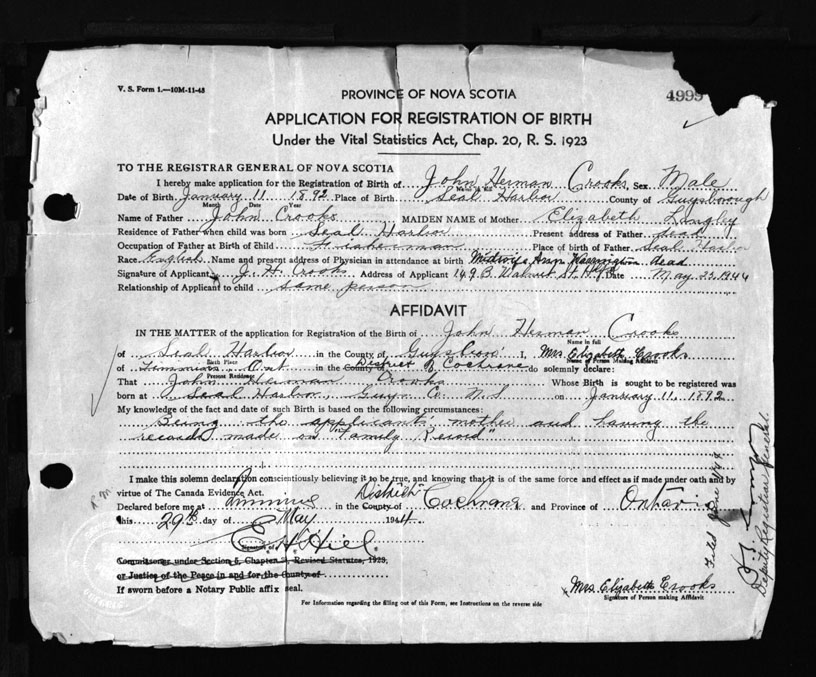 V. S. Form 1.—10M-11-43
PROVINCE OF NOVA SCOTIA
4999
APPLICATION FOR REGISTRATION OF BIRTH
Under the Vital Statistics Act, Chap. 20, R. S. 1923
TO THE REGISTRAR GENERAL OF NOVA SCOTIA
I hereby make application for the Registration of Birth of John Herman Crooks Sex Male
Name in full
Date of Birth January 11 1892 Place of Birth Seal Harbor County of Guysborough
Month Date Year
Name of Father John Crooks MAIDEN NAME of Mother Elizabeth Langley
Residence of Father when child was born Seal Harbor Present address of Father dead
Occupation of Father at Birth of Child Fisherman Place of birth of Father Seal Harbor
Race English Name and present address of Physician in attendance at birth Midwife dead
Signature of Applicant J. H. Crooks Address of Applicant 169 B. Walnut St Hfx Date May 1944
Relationship of Applicant to child same person
AFFIDAVIT
IN THE MATTER of the application for Registration of the Birth of John Herman Crooks
Name in full
of Seal Harbor in the County of Guysboro I, Mrs. Elizabeth Crooks
Birth Place Name of Person Making Affidavit
of Timmins, Ont in the County of District of Cochrane do solemnly declare:
Present Residence
That John Herman Crooks Whose Birth is sought to be registered was
born at Seal Harbor, Guys. Co. N.S on January 11, 1892
My knowledge of the fact and date of such Birth is based on the following circumstances:
Being the applicant's mother and having the
records made on "Family Record"
I make this solemn declaration conscientiously believing it to be true, and knowing that it is of the same force and effect as if made under oath and by
virtue of The Canada Evidence Act.
Declared before me at Timmins in the County of District Cochrane and Province of Ontario
this 29th day of May 1944
E H Hill.
Commissioner under Section 6, Chapter 3, Revised Statutes, 1923,
or Justice of the Peace in and for the County of
If sworn before a Notary Public affix seal.
Mrs. Elizabeth Crooks
Signature of Person making Affidavit
For Information regarding the filling out of this Form, see Instructions on the reverse side
Filed June
Deputy Registrar General.